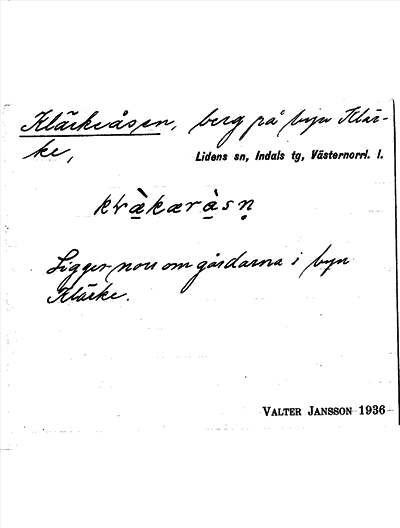 Kläckeåsen, berg på byn Kläc-
ke,
Lidens sn, Indals tg, Västernorrl. l.
Ligger norr om gårdarna i byn
Kläcke.
VALTER JANSSON 1936